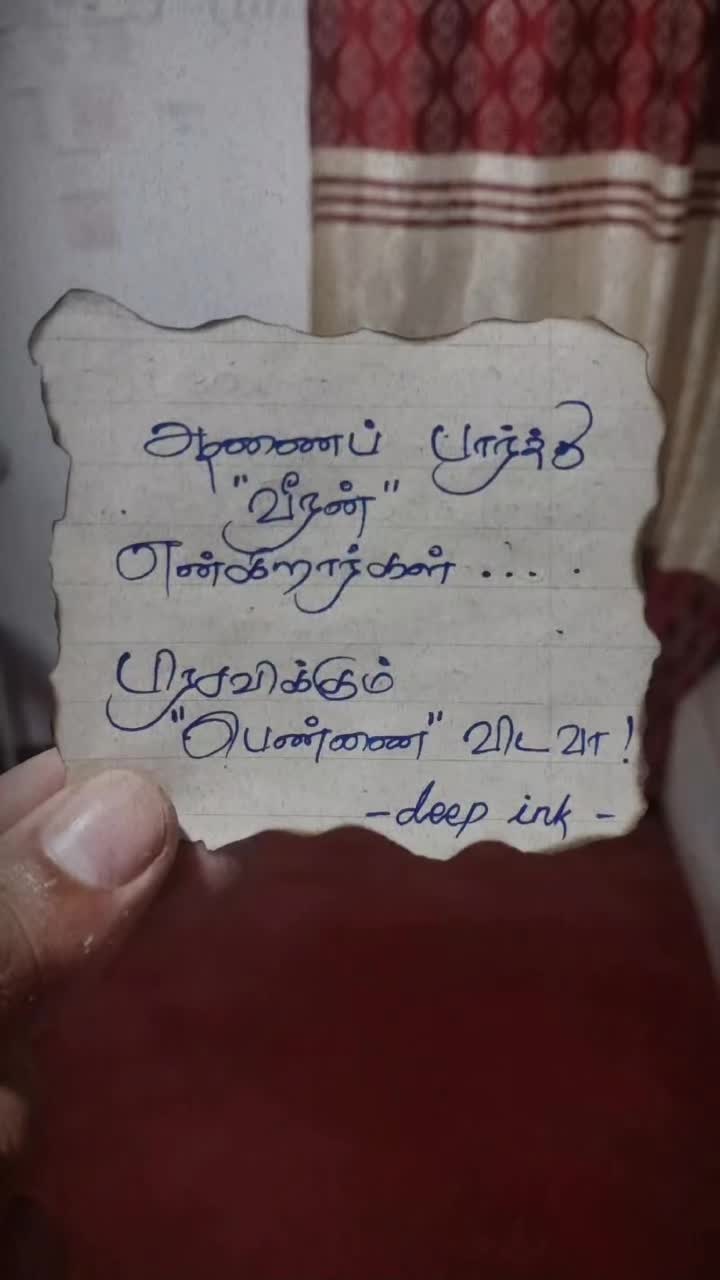 ஆணைப் பார்த்து
"வீரன்"
என்கிறார்கள் .... .
பிரசவிக்கும்
"பெண்ணை" விடவா!
-deep ink -